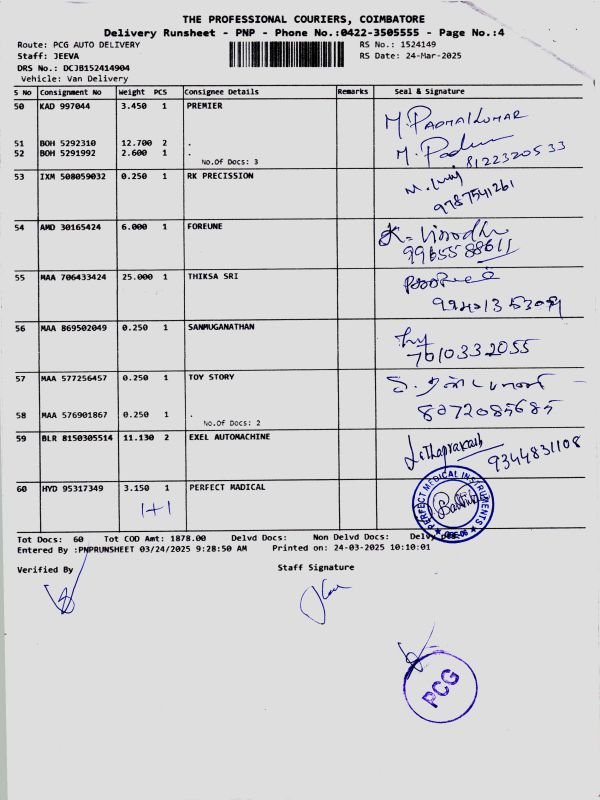 THE PROFESSIONAL COURIERS, COIMBATORE
Delivery Runsheet - PNP - Phone No.:0422-3505555 - Page No.:4
Route: PCG AUTO DELIVERY RS No.: 1524149
Staff: JEEVA RS Date: 24-Mar-2025
DRS No.: DCJB152414904
Vehicle: Van Delivery
S No Consignment No Weight PCS Consignee Details Remarks Seal & Signature
50 KAD 997044 3.450 1 PREMIER
M. PADMAKUMAR
51 BOH 5292310 12.700 2 .
52 BOH 5291992 2.600 1 . 8122320533
No.Of Docs: 3
53 IXM 508059032 0.250 1 RK PRECISSION
9787541261
54 AMD 30165424 6.000 1 FOREUNE
9965588611
55 MAA 706433424 25.000 1 THIKSA SRI
56 MAA 869502049 0.250 1 SANMUGANATHAN
7010332055
57 MAA 577256457 0.250 1 TOY STORY
58 MAA 576901867 0.250 1 . 8072085685
No.Of Docs: 2
59 BLR 8150305514 11.130 2 EXEL AUTOMACHINE
9344831108
60 HYD 95317349 3.150 1 PERFECT MADICAL
1+1
PERFECT MEDICAL INSTRUMENTS
Tot Docs: 60 Tot COD Amt: 1878.00 Delvd Docs: Non Delvd Docs:
Entered By :PNPRUNSHEET 03/24/2025 9:28:50 AM Printed on: 24-03-2025 10:10:01
Verified By Staff Signature
PCG